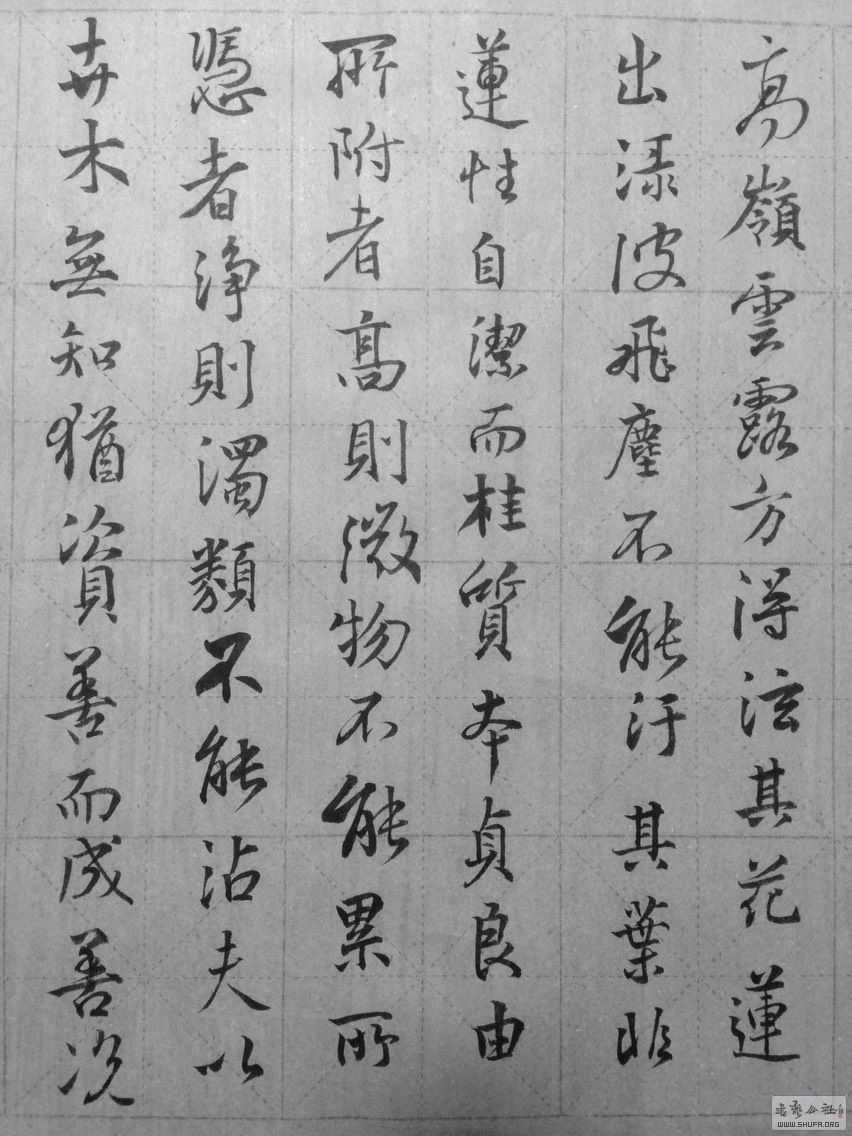 高嶺雲露方得泫其花蓮
出淥波飛塵不能汙其葉非
蓮性自潔而桂質本貞良由
所附者高則微物不能累所
憑者淨則濁類不能沾夫以
卉木無知猶資善而成善況
书艺公社
WWW.SHUFA.ORG